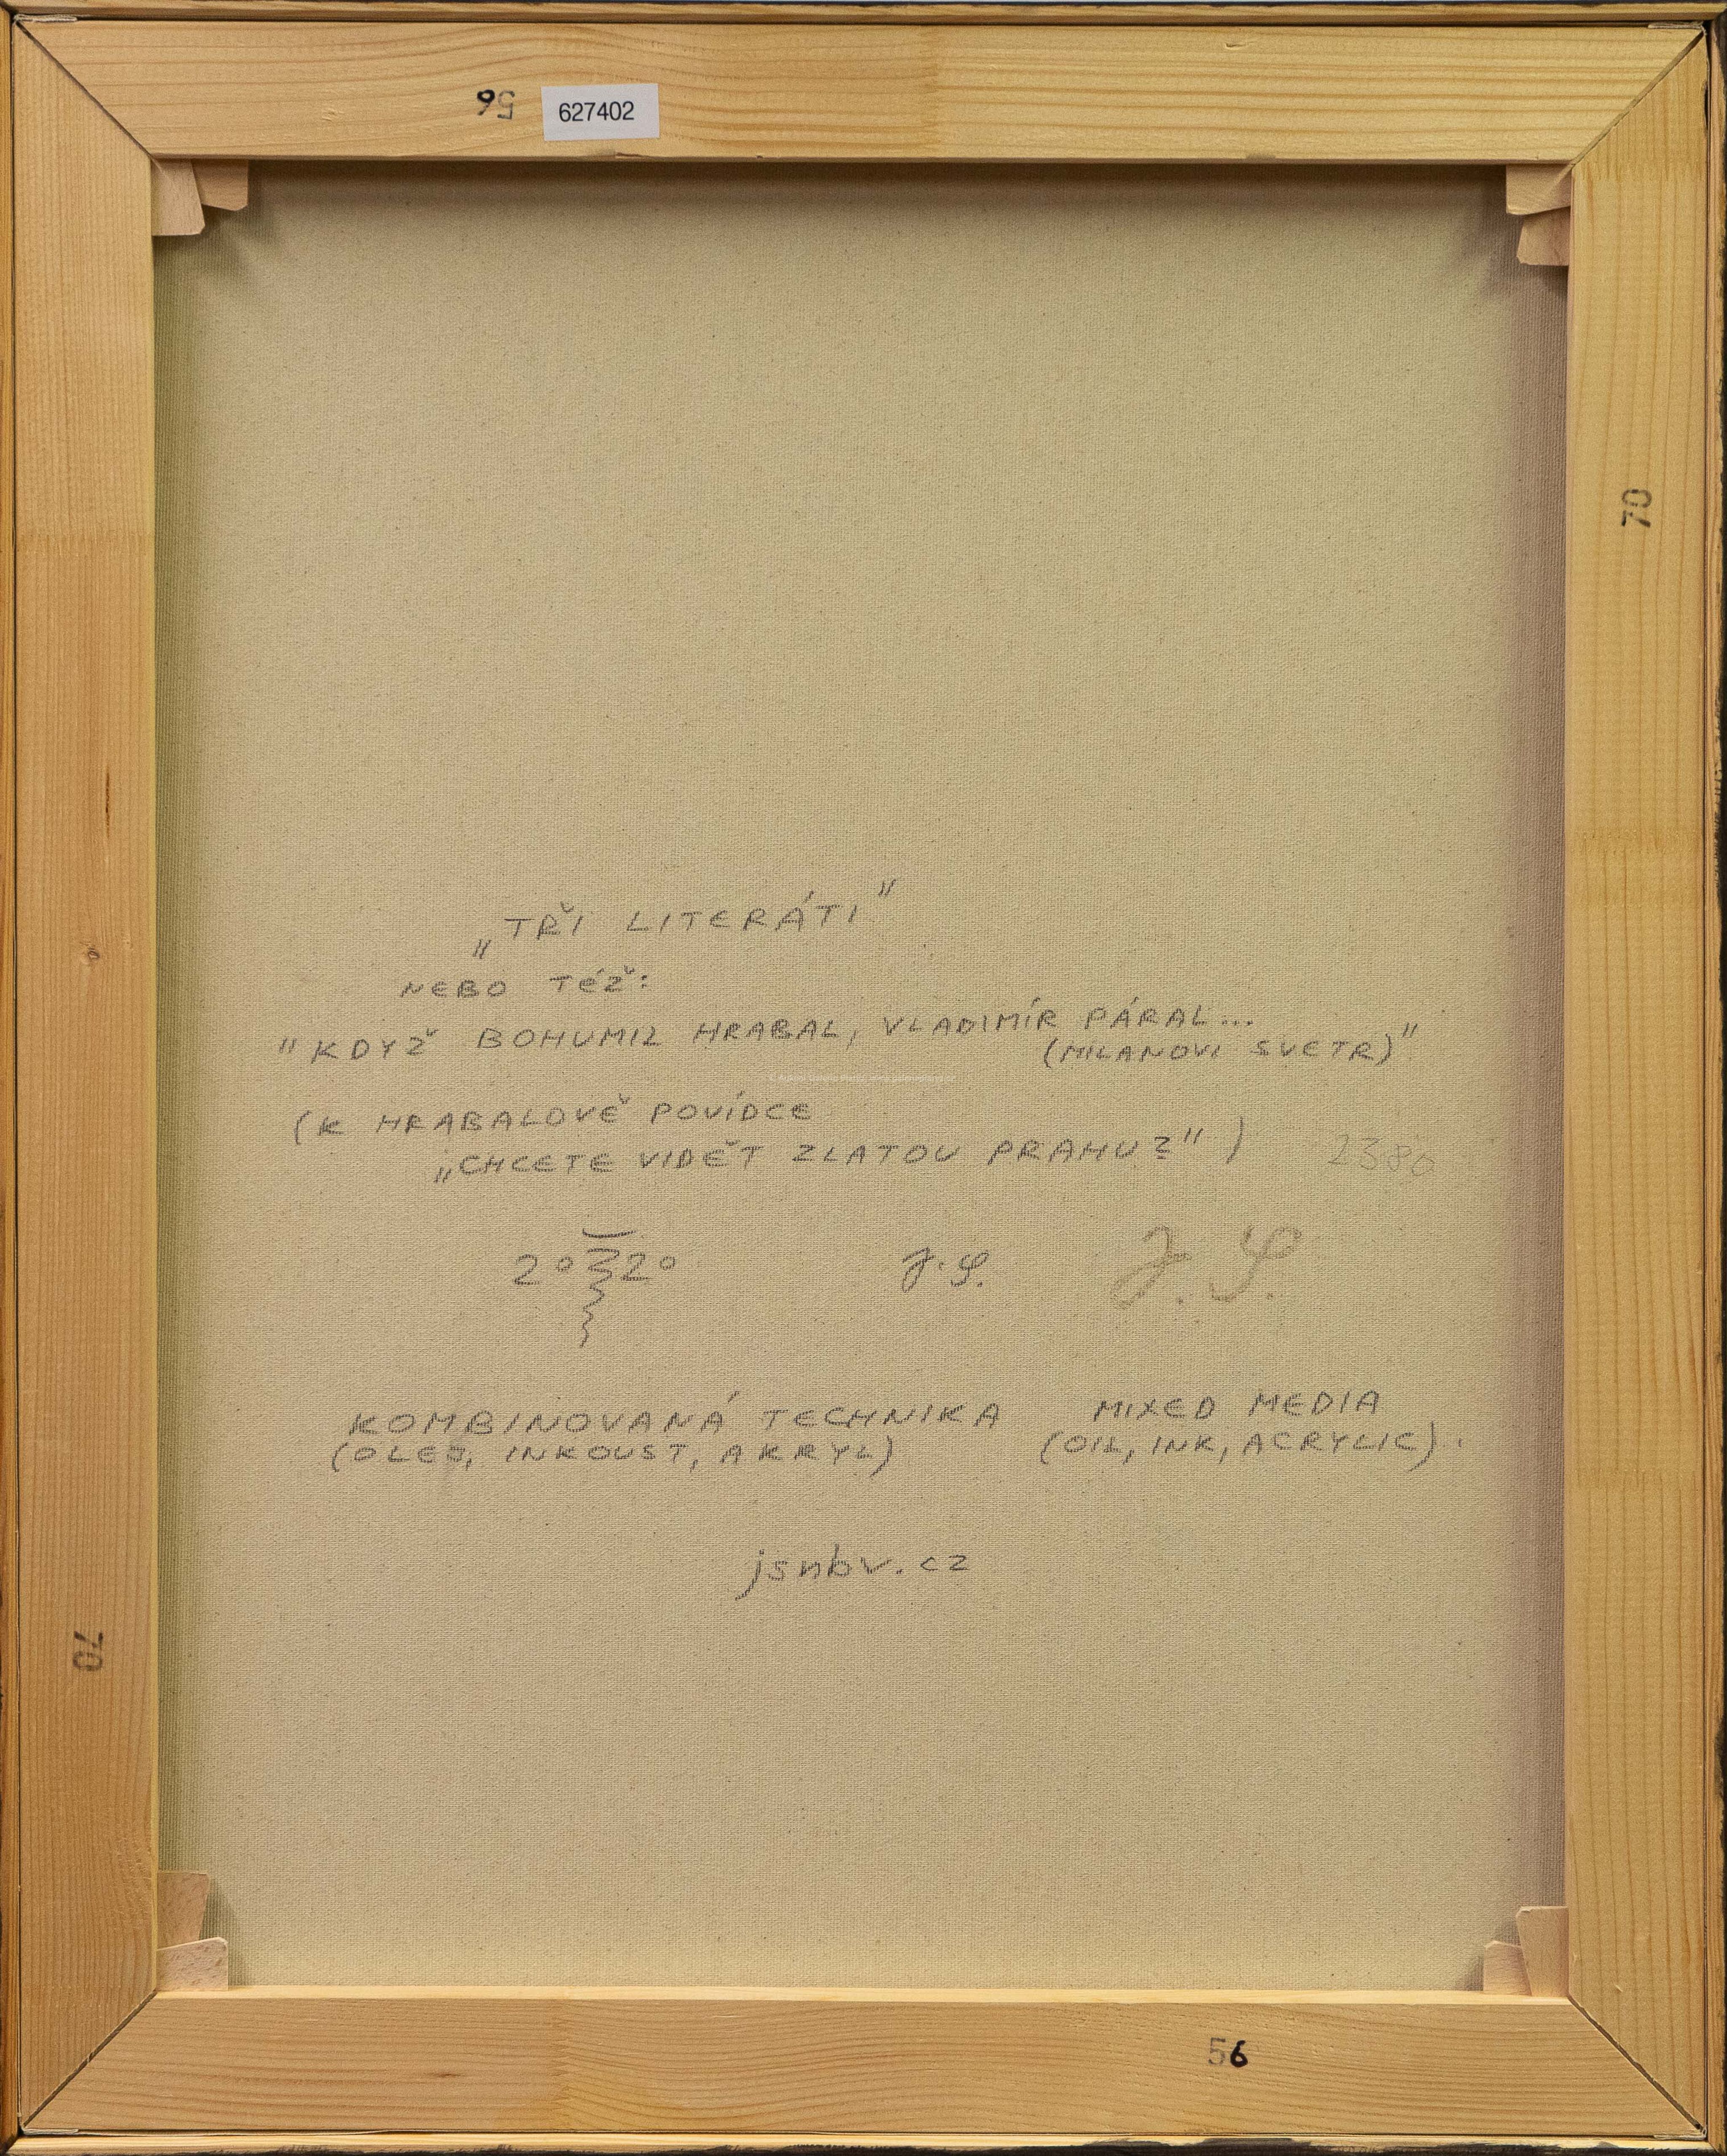 56
627402
70
„TŘI LITERÁTI"
NEBO TÉŽ:
"KDYŽ BOHUMIL HRABAL, VLADIMÍR PÁRAL...
(MILANOVI SVETR)"
(K HRABALOVĚ POVÍDCE
„CHCETE VIDĚT ZLATOU PRAHU?")
2380
20 20
J.S.
KOMBINOVANÁ TECHNIKA
(OLEJ, INKOUST, AKRYL)
MIXED MEDIA
(OIL, INK, ACRYLIC).
jsnbv.cz
70
56